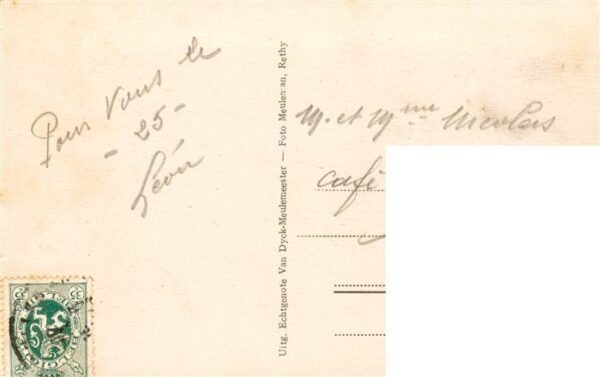 Pour Vous le
- 25 -
Léon
Uitg. Echtgenote Van Dyck-Meulemeester — Foto Meuleman, Rethy
M. et Mme Nicolas
café
35
35